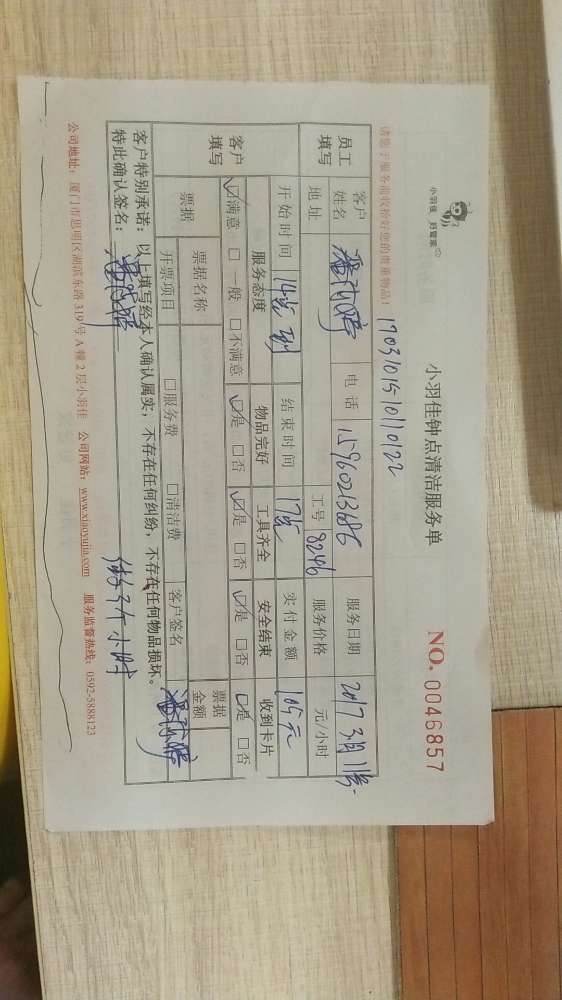 小羽佳 好管家
小羽佳钟点清洁服务单
NO. 0046857
1703101510110122
请您于服务前收拾好您的贵重物品!
员工填写
客户姓名
电话 15960213686
服务日期 2017 3月11号
地址
工号 8246
服务价格 元/小时
开始时间 14点到
结束时间 17点
实付金额 105元
客户填写
服务态度 物品完好 工具齐全 安全结束 收到卡片
☑满意 □一般 □不满意 ☑是 □否 ☑是 □否 ☑是 □否 ☑是 □否
票据
票据名称
票据金额
开票项目 □服务费 □清洁费 客户签名
客户特别承诺:以上填写经本人确认属实;不存在任何纠纷,不存在任何物品损坏。
特此确认签名:
做3个小时
公司地址:厦门市思明区湖滨东路319号A幢2层小羽佳 公司网站:www.xiaoyujia.com 服务监督热线:0592-5888123